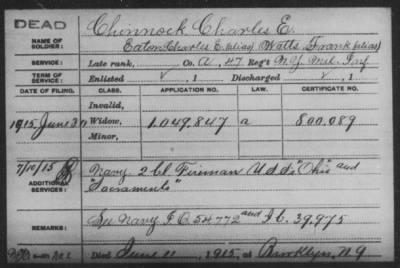 DEAD
NAME OF SOLDIER: Chinnock, Charles E.
Eaton, Charles E. (alias) Watts, Frank (alias)
TERM OF SERVICE: Late rank, Co. A, 47 Reg't N.Y. Mil. Inf
Enlisted ✓, 1 Discharged ✓, 1
DATE OF FILING. CLASS. APPLICATION NO. LAW. CERTIFICATE NO.
Invalid,
1915 June 30 Widow, 1.049.847 a 800.089
Minor,
7/10/15
ADDITIONAL SERVICES: Navy. 2 cl Fireman U.S.S. "Ohio" and
"Sacramento"
REMARKS: See Navy I.O. 54772 and I.C. 39,975
Died June 11, 1915, at Brooklyn, N.Y.